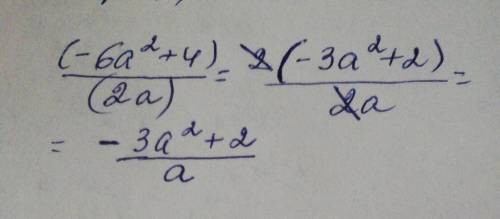 (-6a²+4)/(2a) = 2(-3a²+2)/2a =
= -3a²+2/a